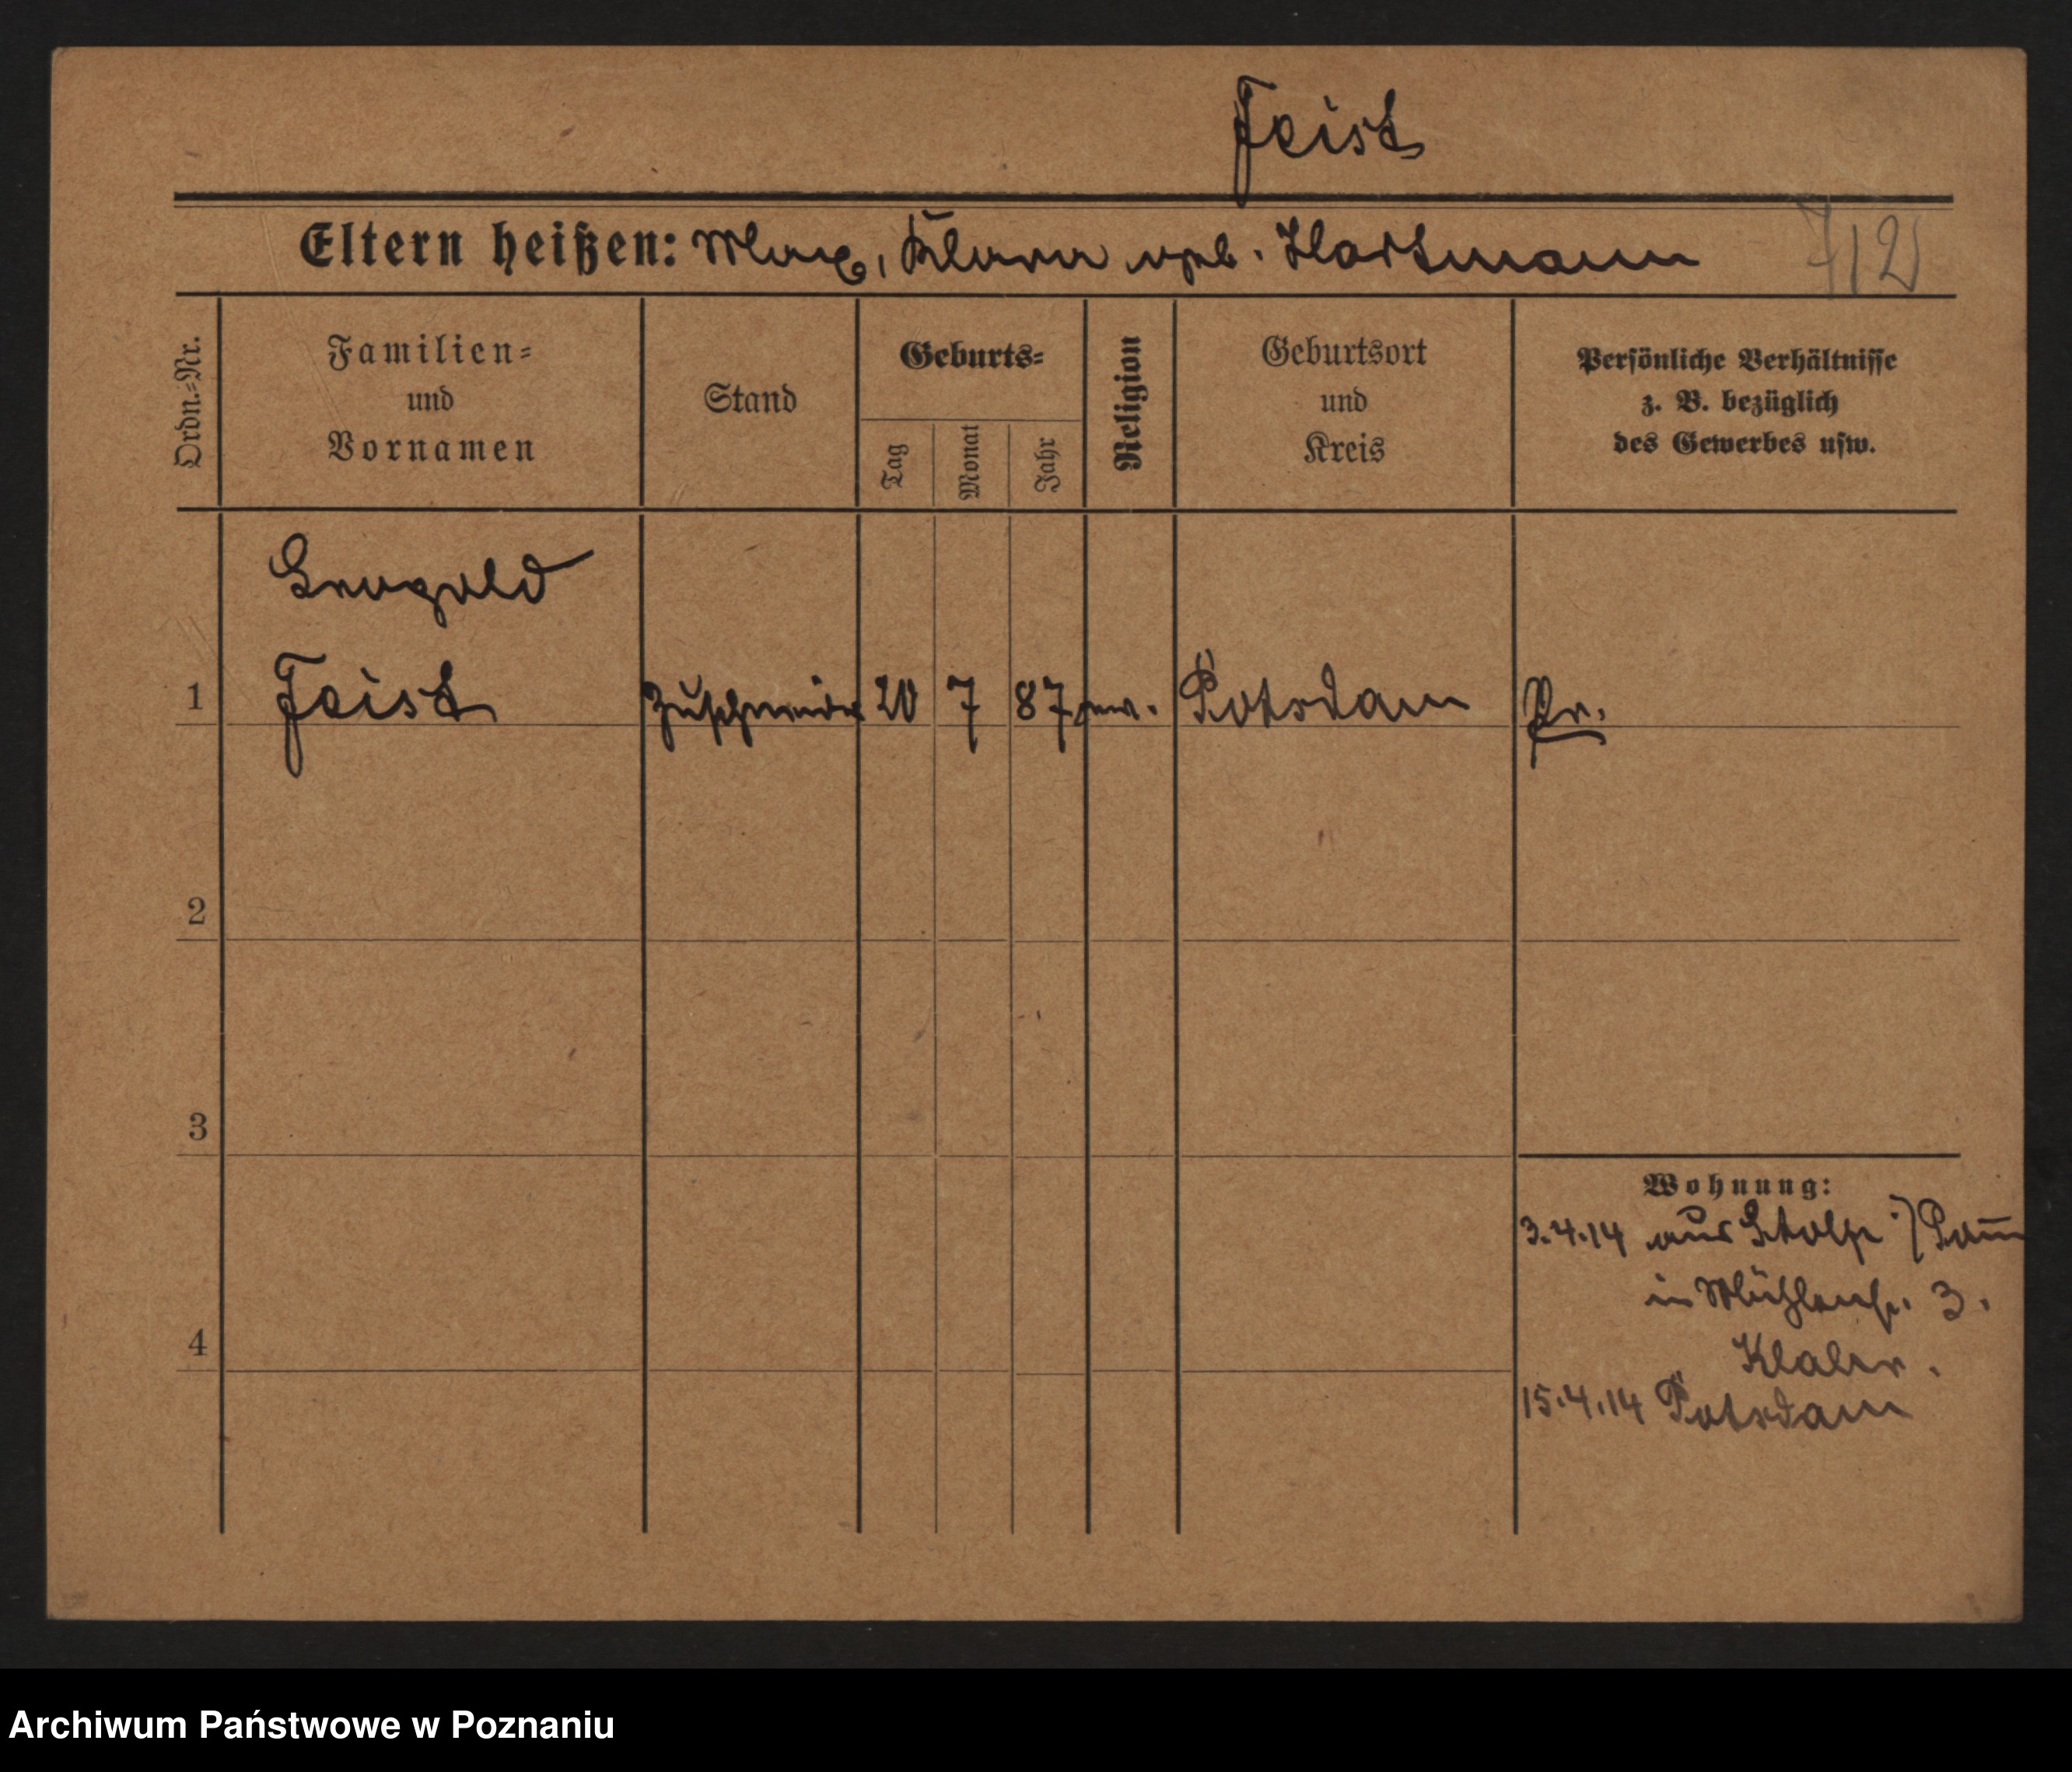 Feist
Eltern heißen: Max, Klara geb. Hartmann
712
Ordn.-Nr.
Familien-
und
Vornamen
Stand
Geburts-
Tag
Monat
Jahr
Religion
Geburtsort
und
Kreis
Persönliche Verhältnisse
z. B. bezüglich
des Gewerbes usw.
Leopold
1 Feist Zuschneider 20 7 87 ev. Potsdam Pr.
2
3
4
Wohnung:
3.4.14 aus Stolp i/Pom
in Mühlenstr. 3.
15.4.14 Potsdam
Archiwum Państwowe w Poznaniu